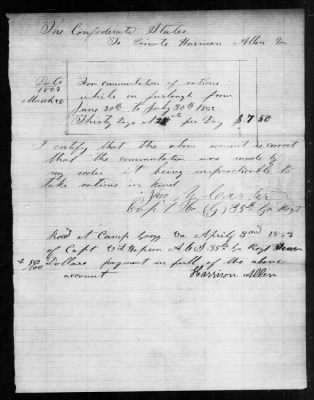 The Confederate States
To Private Harrison Allen Dr
Date
1863
March 20
For commutation of rations
while on furlough from
June 30th to July 30th 1862
Thirty Days at 25cts per Day $7.50
I certify that the above account is correct
that the commutation was made by
my order it being impracticable to
take rations in kind
Capt Co (G) 35th Ga Regt
Recd at Camp Gregg Va April 3rd 1863
of Capt A C S 35th Ga Regt Seven
& 50/100 Dollars payment in full of the above
account Harrison Allen